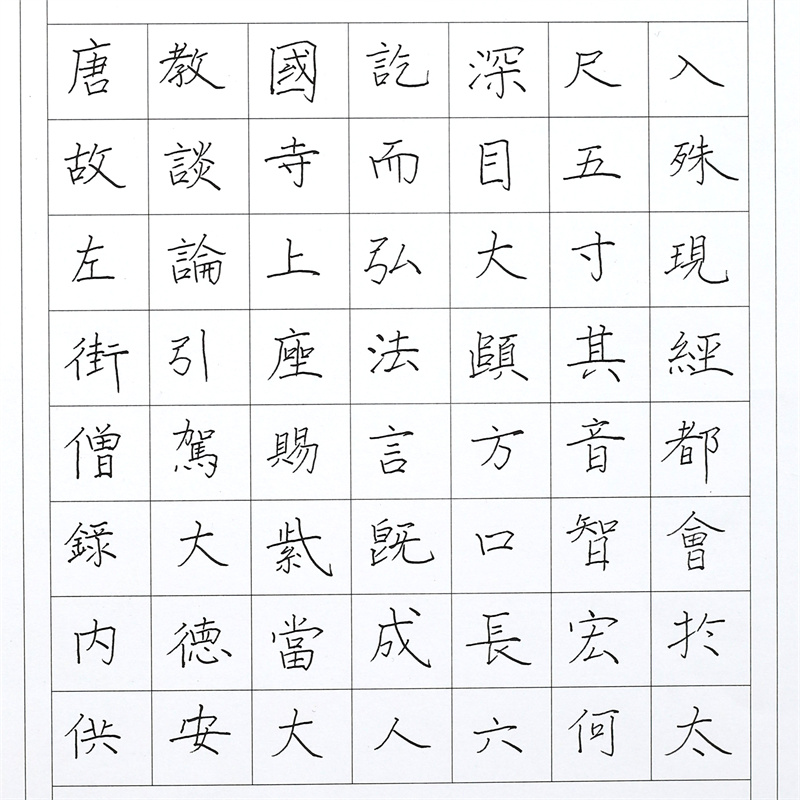 唐故左街僧録内供
教談論引駕大德安
國寺上座賜紫當大
訖而弘法言既成人
深目大頤方口長六
尺五寸其音智宏何
入殊現經都會於太